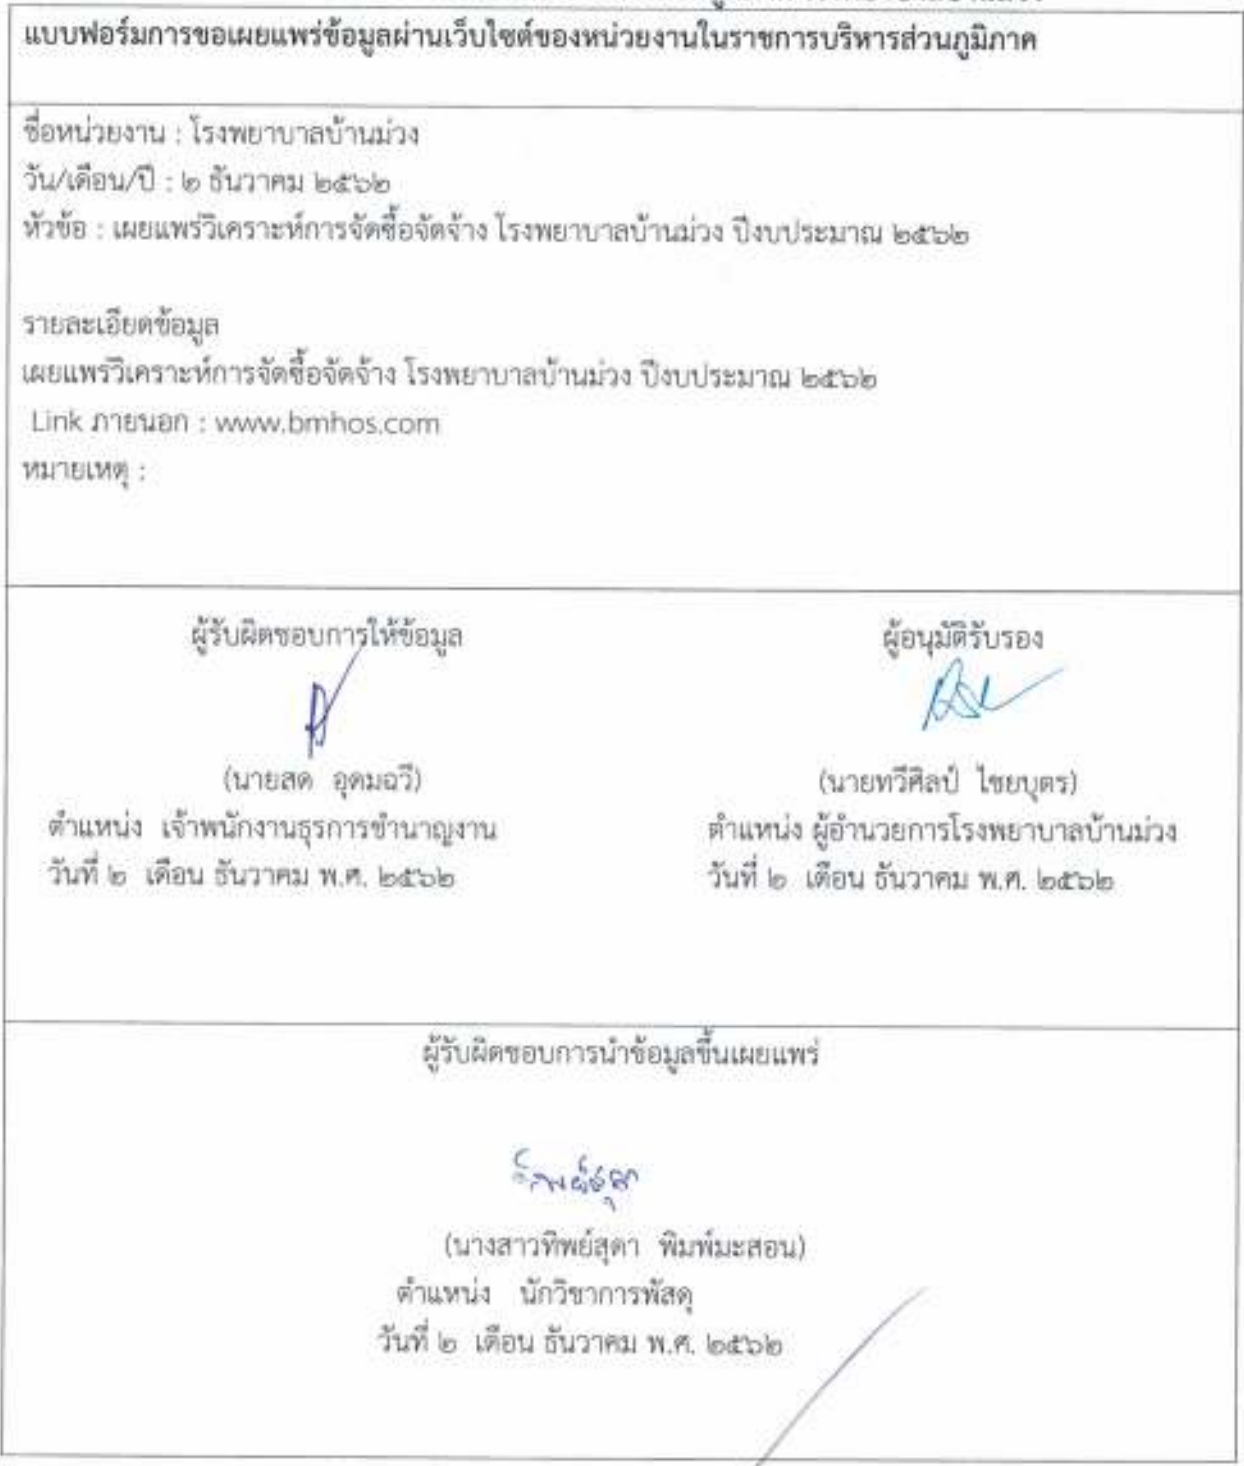 แบบฟอร์มการขอเผยแพร่ข้อมูลผ่านเว็บไซต์ของหน่วยงานในราชการบริหารส่วนภูมิภาค
ชื่อหน่วยงาน : โรงพยาบาลบ้านม่วง
วัน/เดือน/ปี : ๒ ธันวาคม ๒๕๖๒
หัวข้อ : เผยแพร่วิเคราะห์การจัดซื้อจัดจ้าง โรงพยาบาลบ้านม่วง ปีงบประมาณ ๒๕๖๒
รายละเอียดข้อมูล
เผยแพร่วิเคราะห์การจัดซื้อจัดจ้าง โรงพยาบาลบ้านม่วง ปีงบประมาณ ๒๕๖๒
Link ภายนอก : www.bmhos.com
หมายเหตุ :
ผู้รับผิดชอบการให้ข้อมูล
(นายสด อุดมฉวี)
ตำแหน่ง เจ้าพนักงานธุรการชำนาญงาน
วันที่ ๒ เดือน ธันวาคม พ.ศ. ๒๕๖๒
ผู้อนุมัติรับรอง
(นายทวีศิลป์ ไชยบุตร)
ตำแหน่ง ผู้อำนวยการโรงพยาบาลบ้านม่วง
วันที่ ๒ เดือน ธันวาคม พ.ศ. ๒๕๖๒
ผู้รับผิดชอบการนำข้อมูลขึ้นเผยแพร่
ทิพย์สุดา
(นางสาวทิพย์สุดา พิมพ์มะสอน)
ตำแหน่ง นักวิชาการพัสดุ
วันที่ ๒ เดือน ธันวาคม พ.ศ. ๒๕๖๒